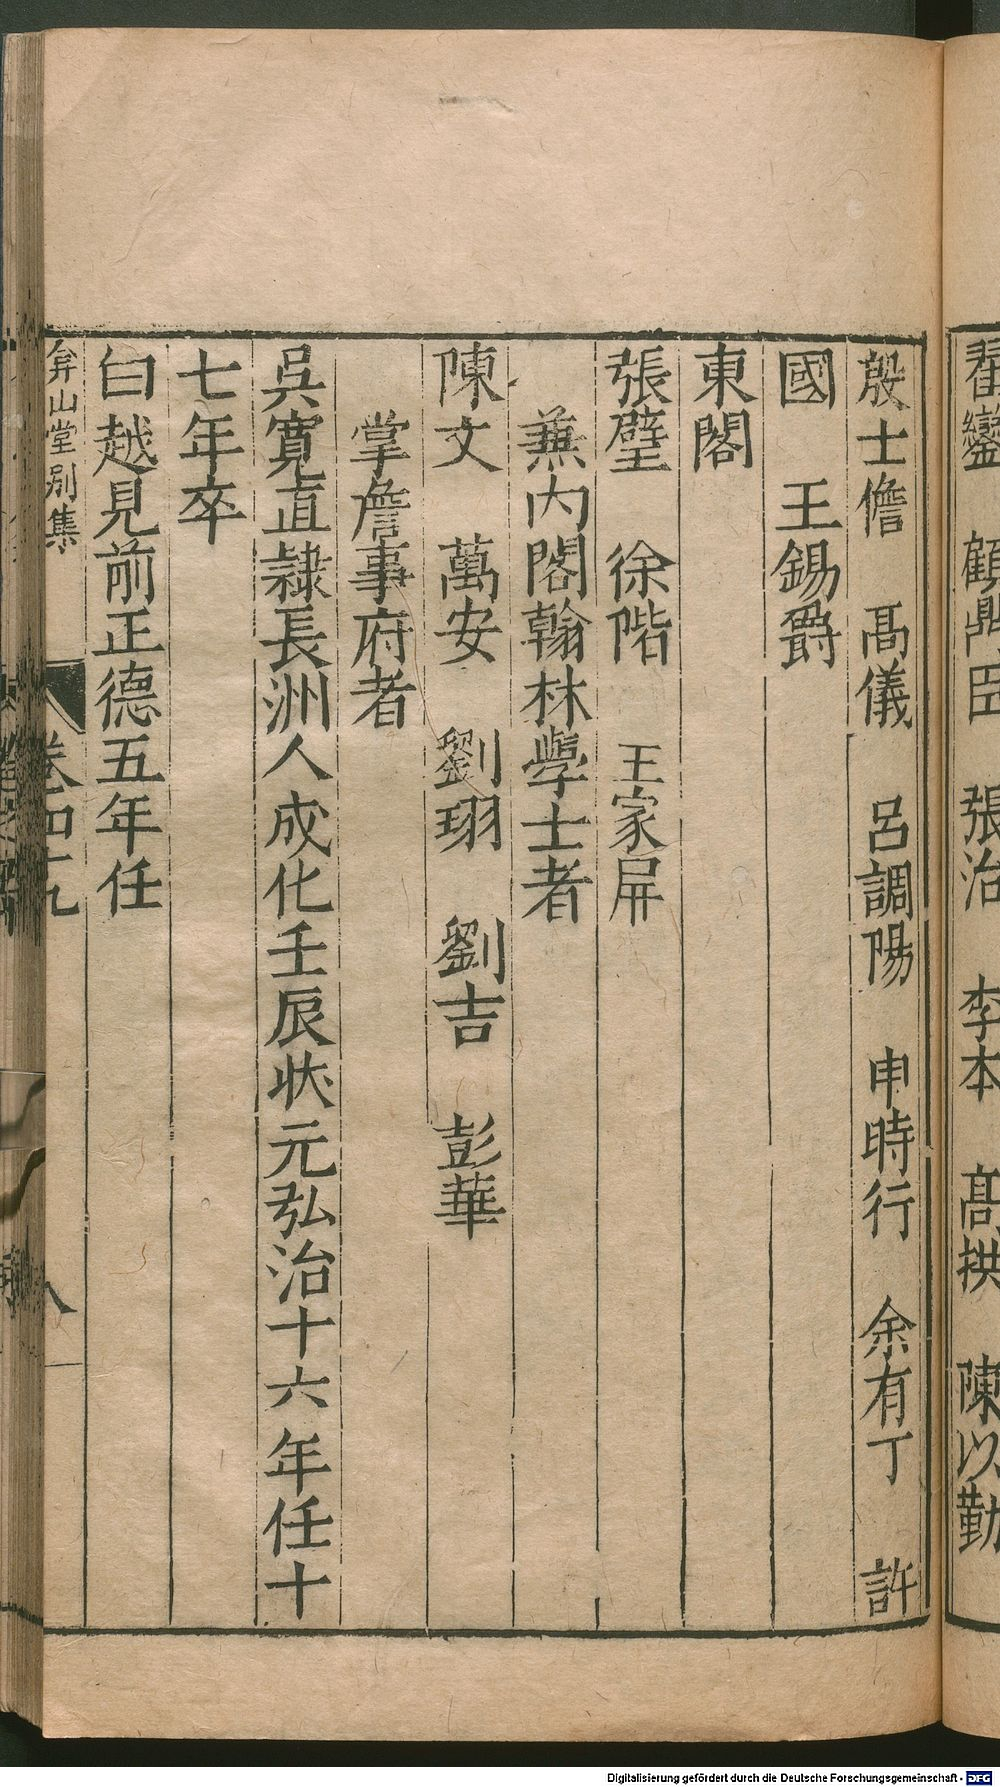 翟鑾　顧鼎臣　張治　李本　高拱　陳以勤
殷士儋　高儀　呂調陽　申時行　余有丁　許
國　王錫爵
東閣
張璧　徐階　王家屏
兼內閣翰林學士者
陳文　萬安　劉珝　劉吉　彭華
掌詹事府者
吳寬直隸長洲人成化壬辰狀元弘治十六年任十
七年卒
白越見前正德五年任
弇山堂別集　卷四十九　八
Digitalisierung gefördert durch die Deutsche Forschungsgemeinschaft - DFG